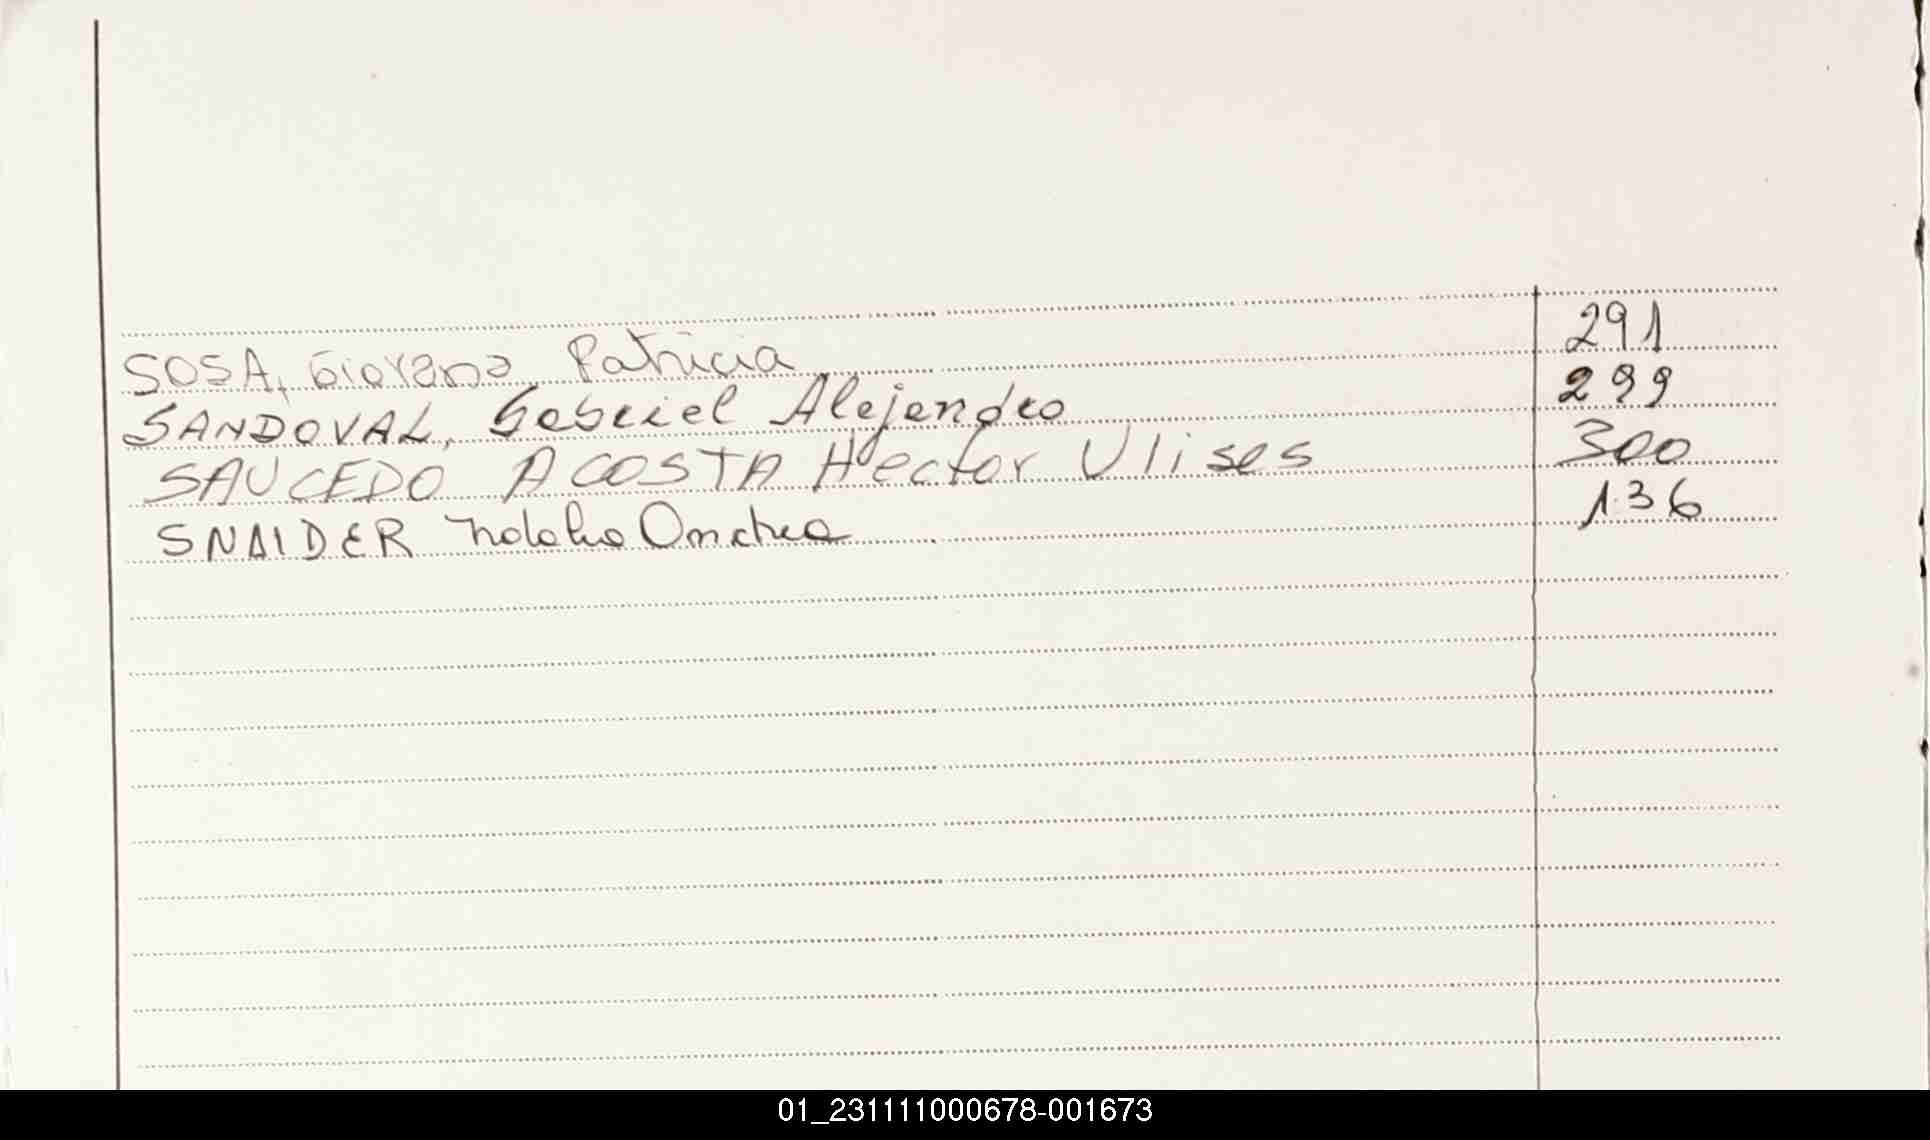 SOSA, Giovana Patricia 291
SANDOVAL, Gabriel Alejandro 299
SAUCEDO ACOSTA Hector Ulises 300
SNAIDER Natalia Andrea 136
01_231111000678-001673